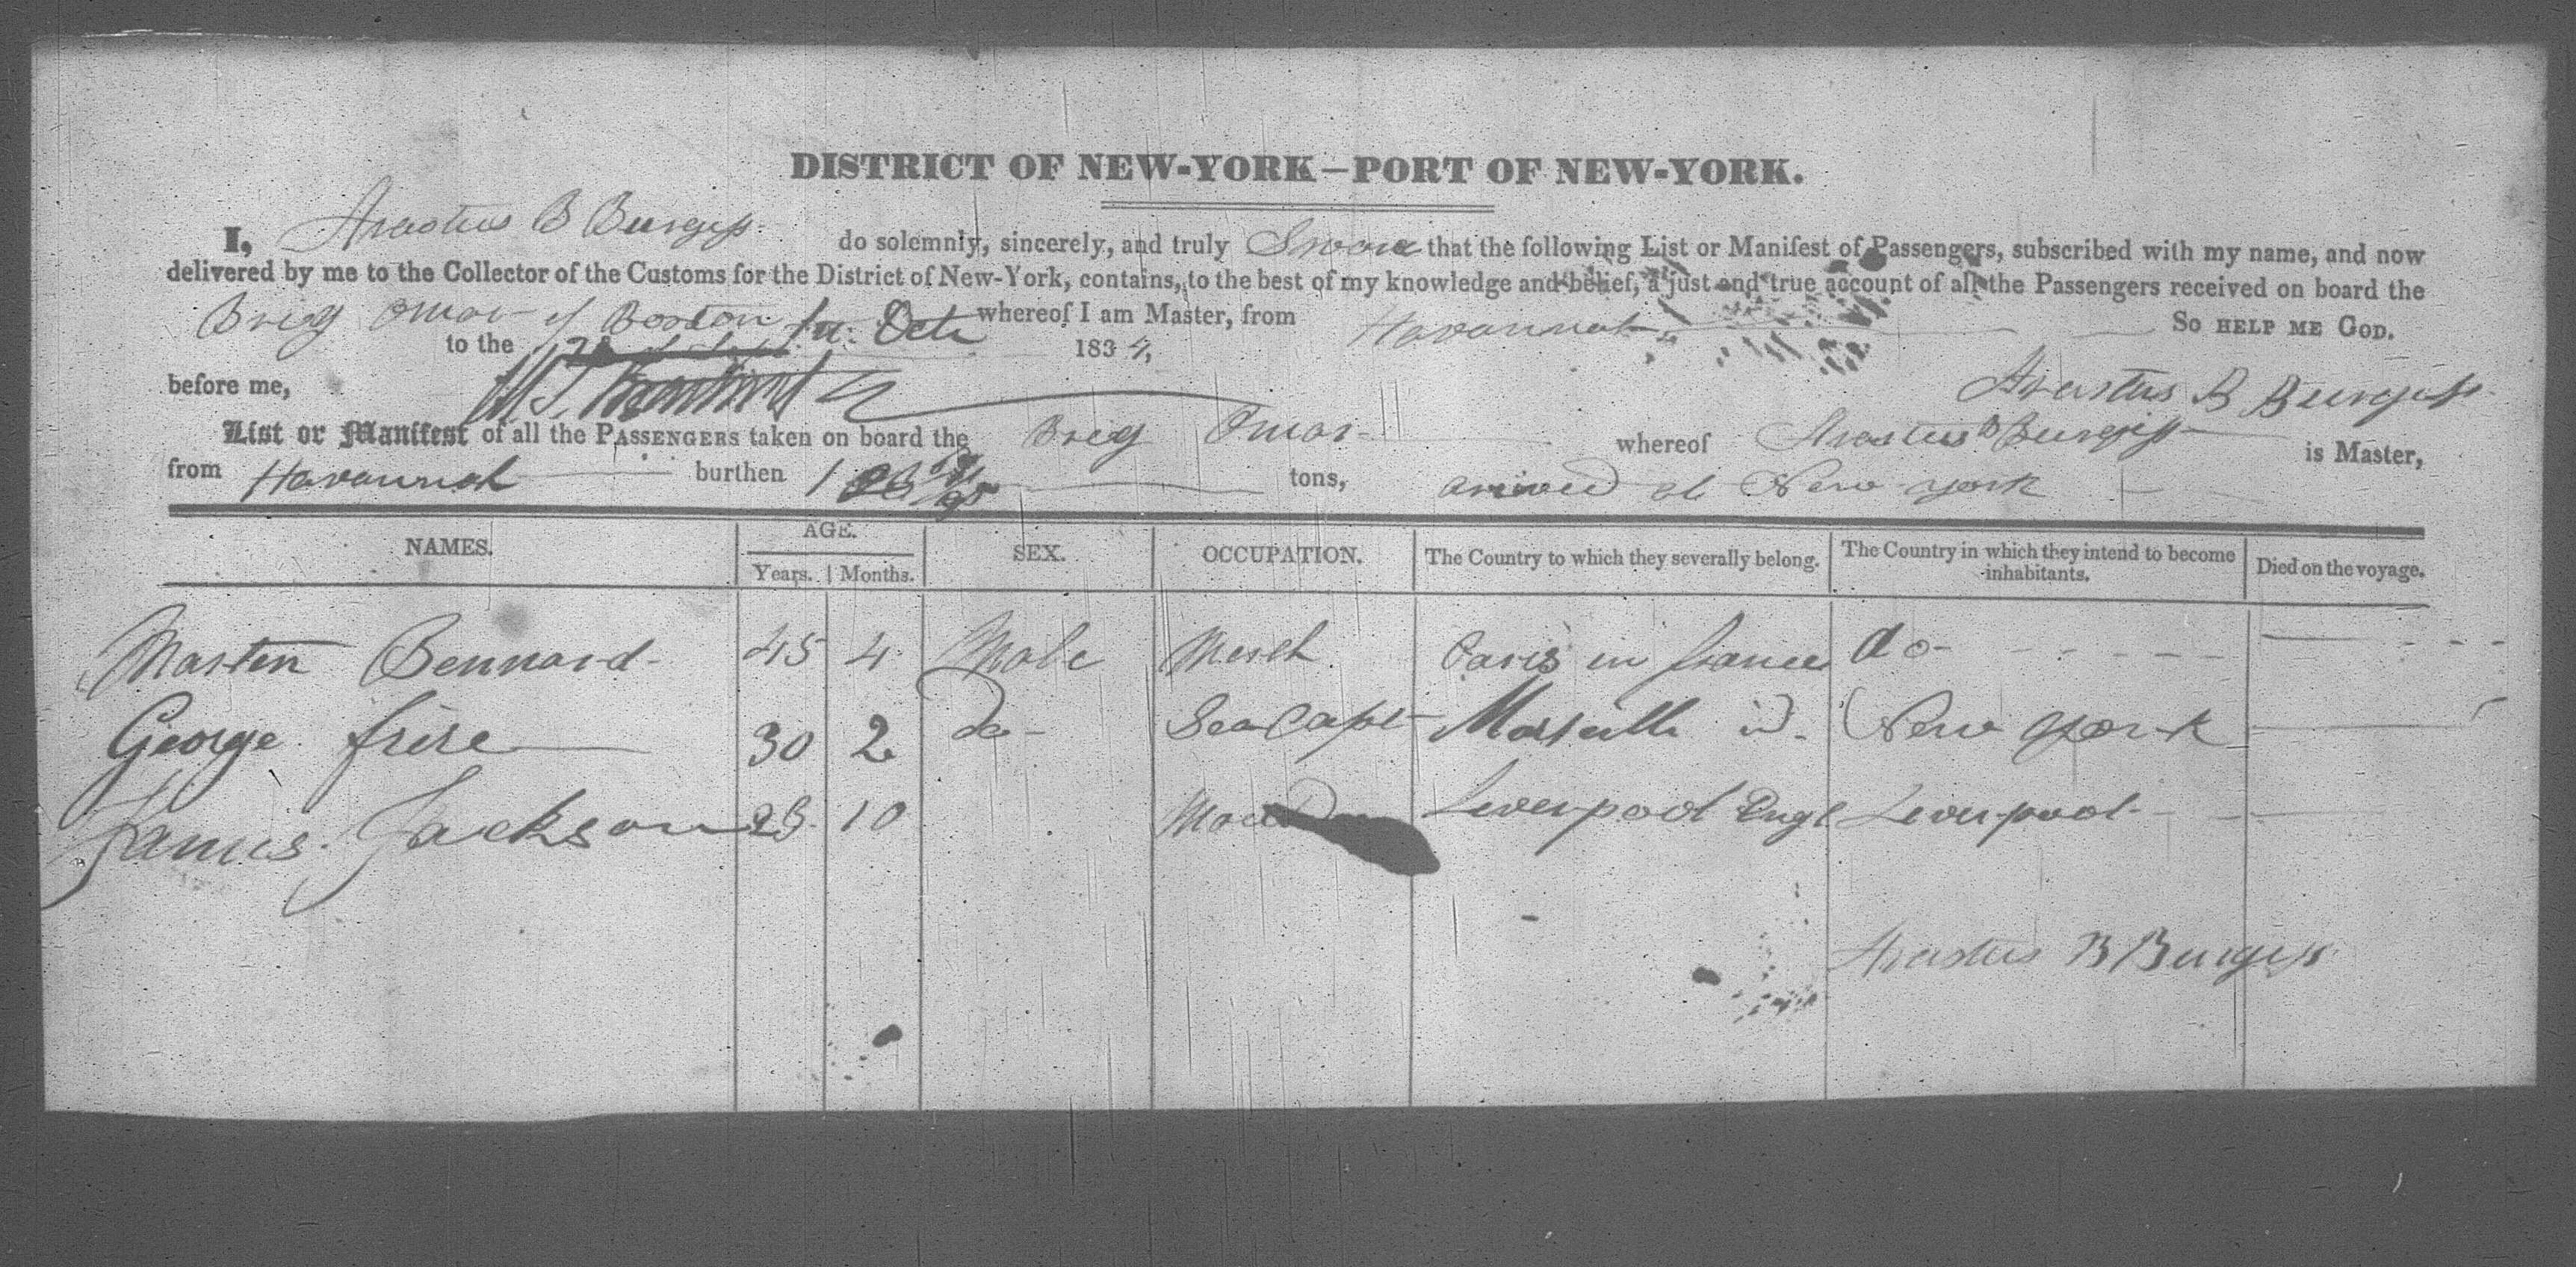 DISTRICT OF NEW-YORK—PORT OF NEW-YORK.
I, Arastus B Burgess do solemnly, sincerely, and truly Swore that the following List or Manifest of Passengers, subscribed with my name, and now
delivered by me to the Collector of the Customs for the District of New-York, contains, to the best of my knowledge and belief, a just and true account of all the Passengers received on board the
Brig Omar of Boston whereof I am Master, from Havannah So HELP ME GOD.
to the Oct 1834,
Arastus B Burgess
before me,
List or Manifest of all the PASSENGERS taken on board the Brig Omar whereof Arastus B Burgess is Master,
from Havannah burthen tons, arrived at New York
NAMES. AGE. SEX. OCCUPATION. The Country to which they severally belong. The Country in which they intend to become inhabitants. Died on the voyage.
Years. Months.
Marten Bennard 45 4 Male Merch Paris in france do
George frere 30 2 do Sea Capt Marseille in New York
Jamis Jackson 10 Liverpool Engl Liverpool
Arastus B Burgess